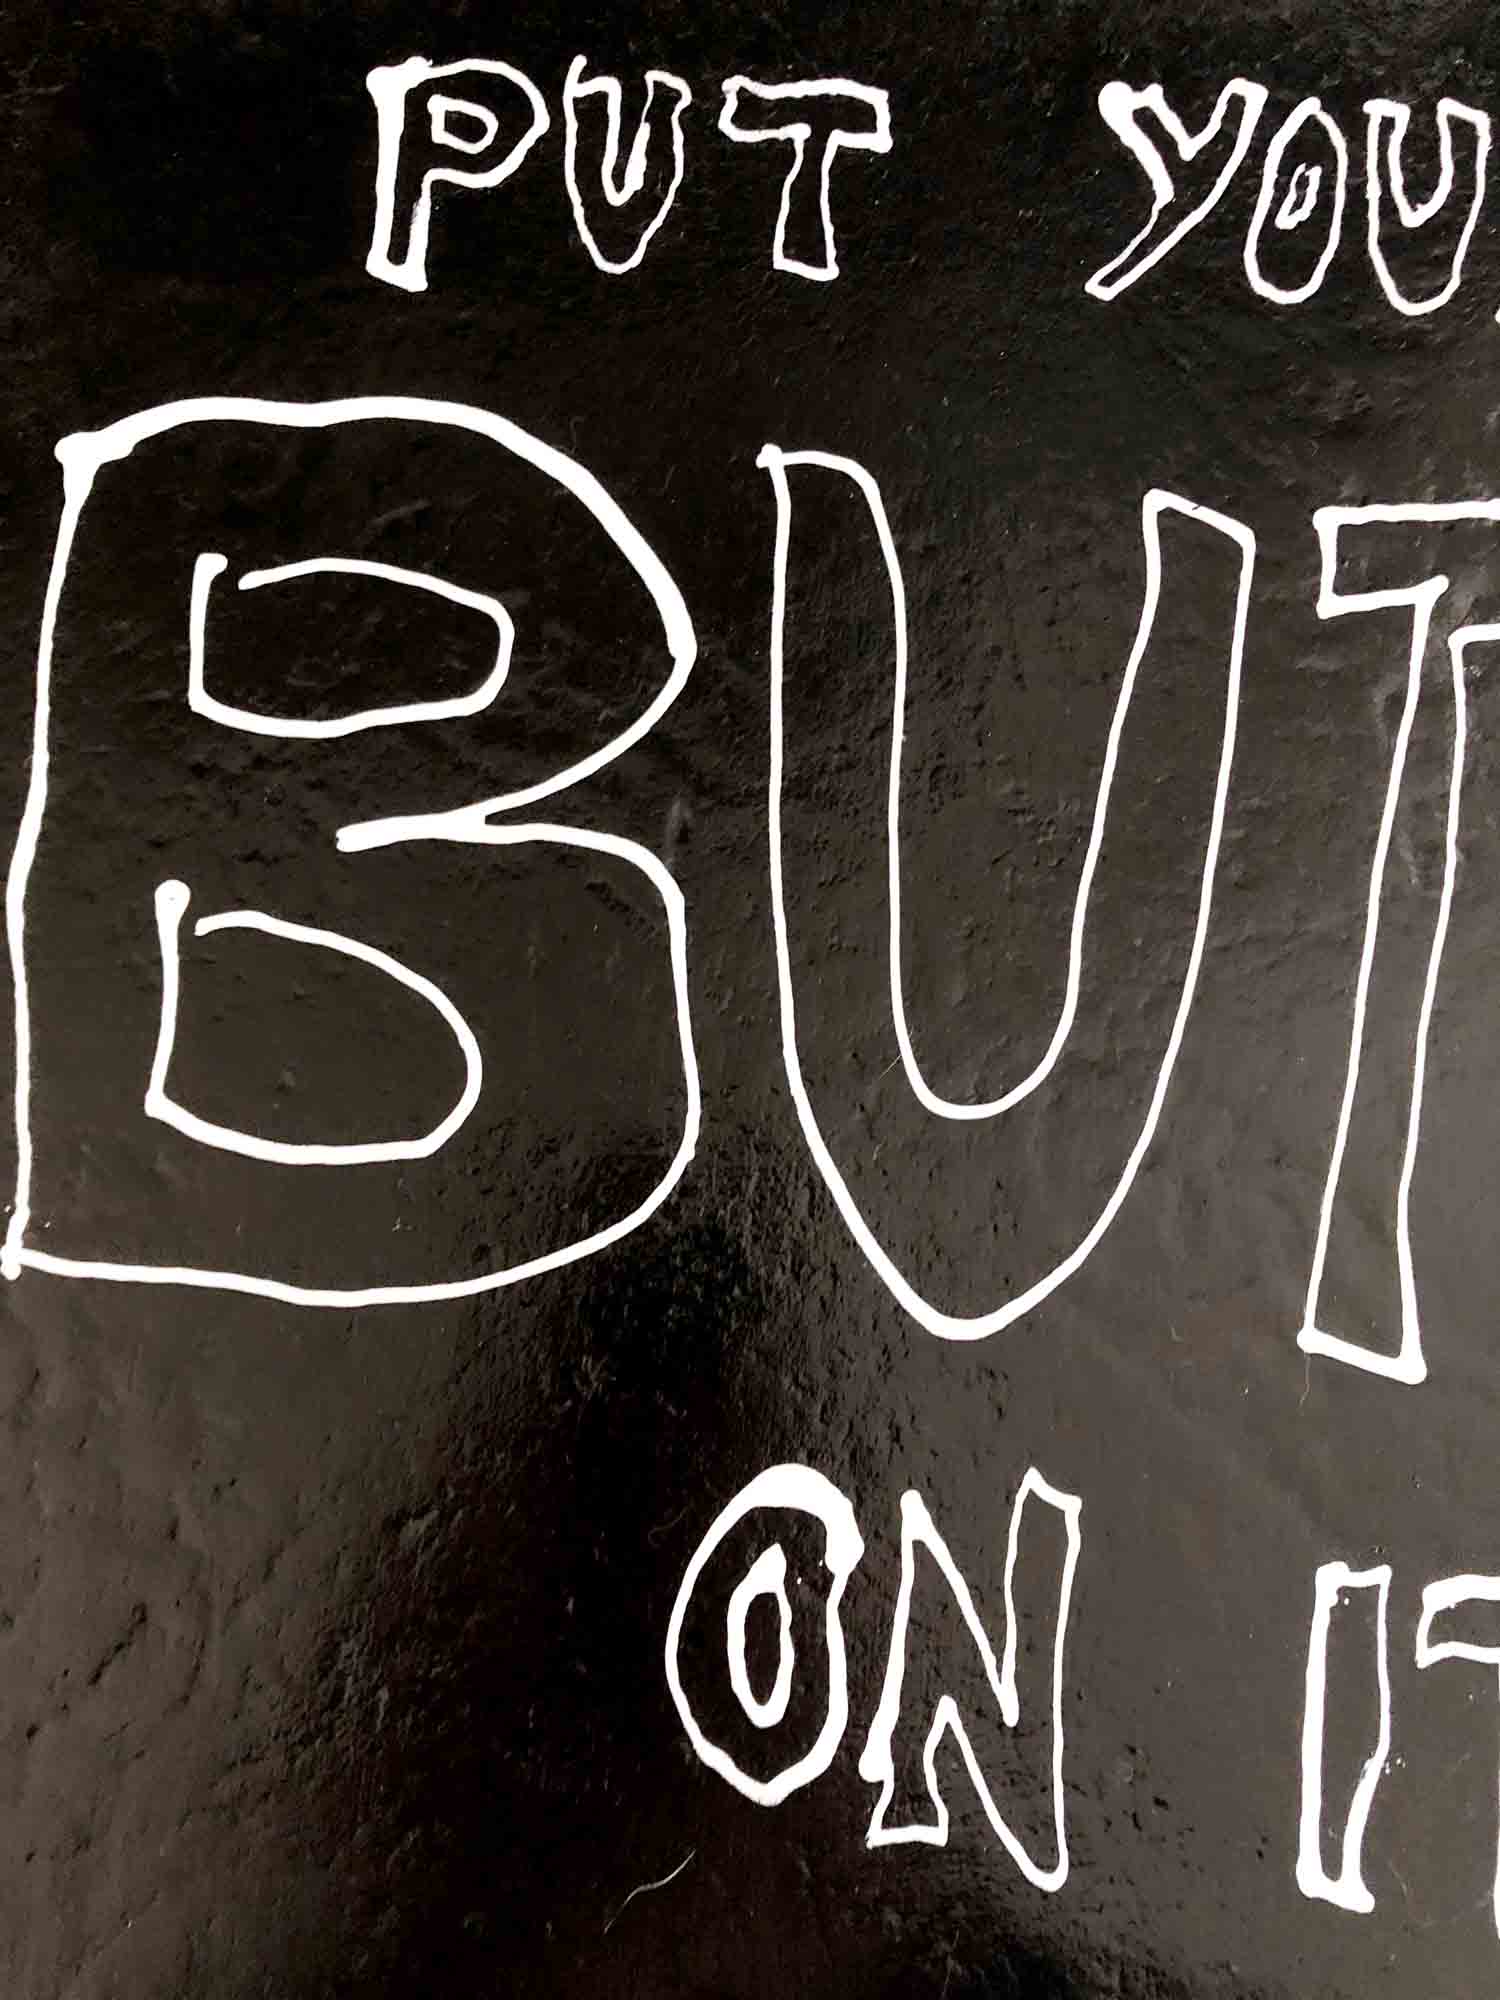 PUT YOU
BUT
ON IT